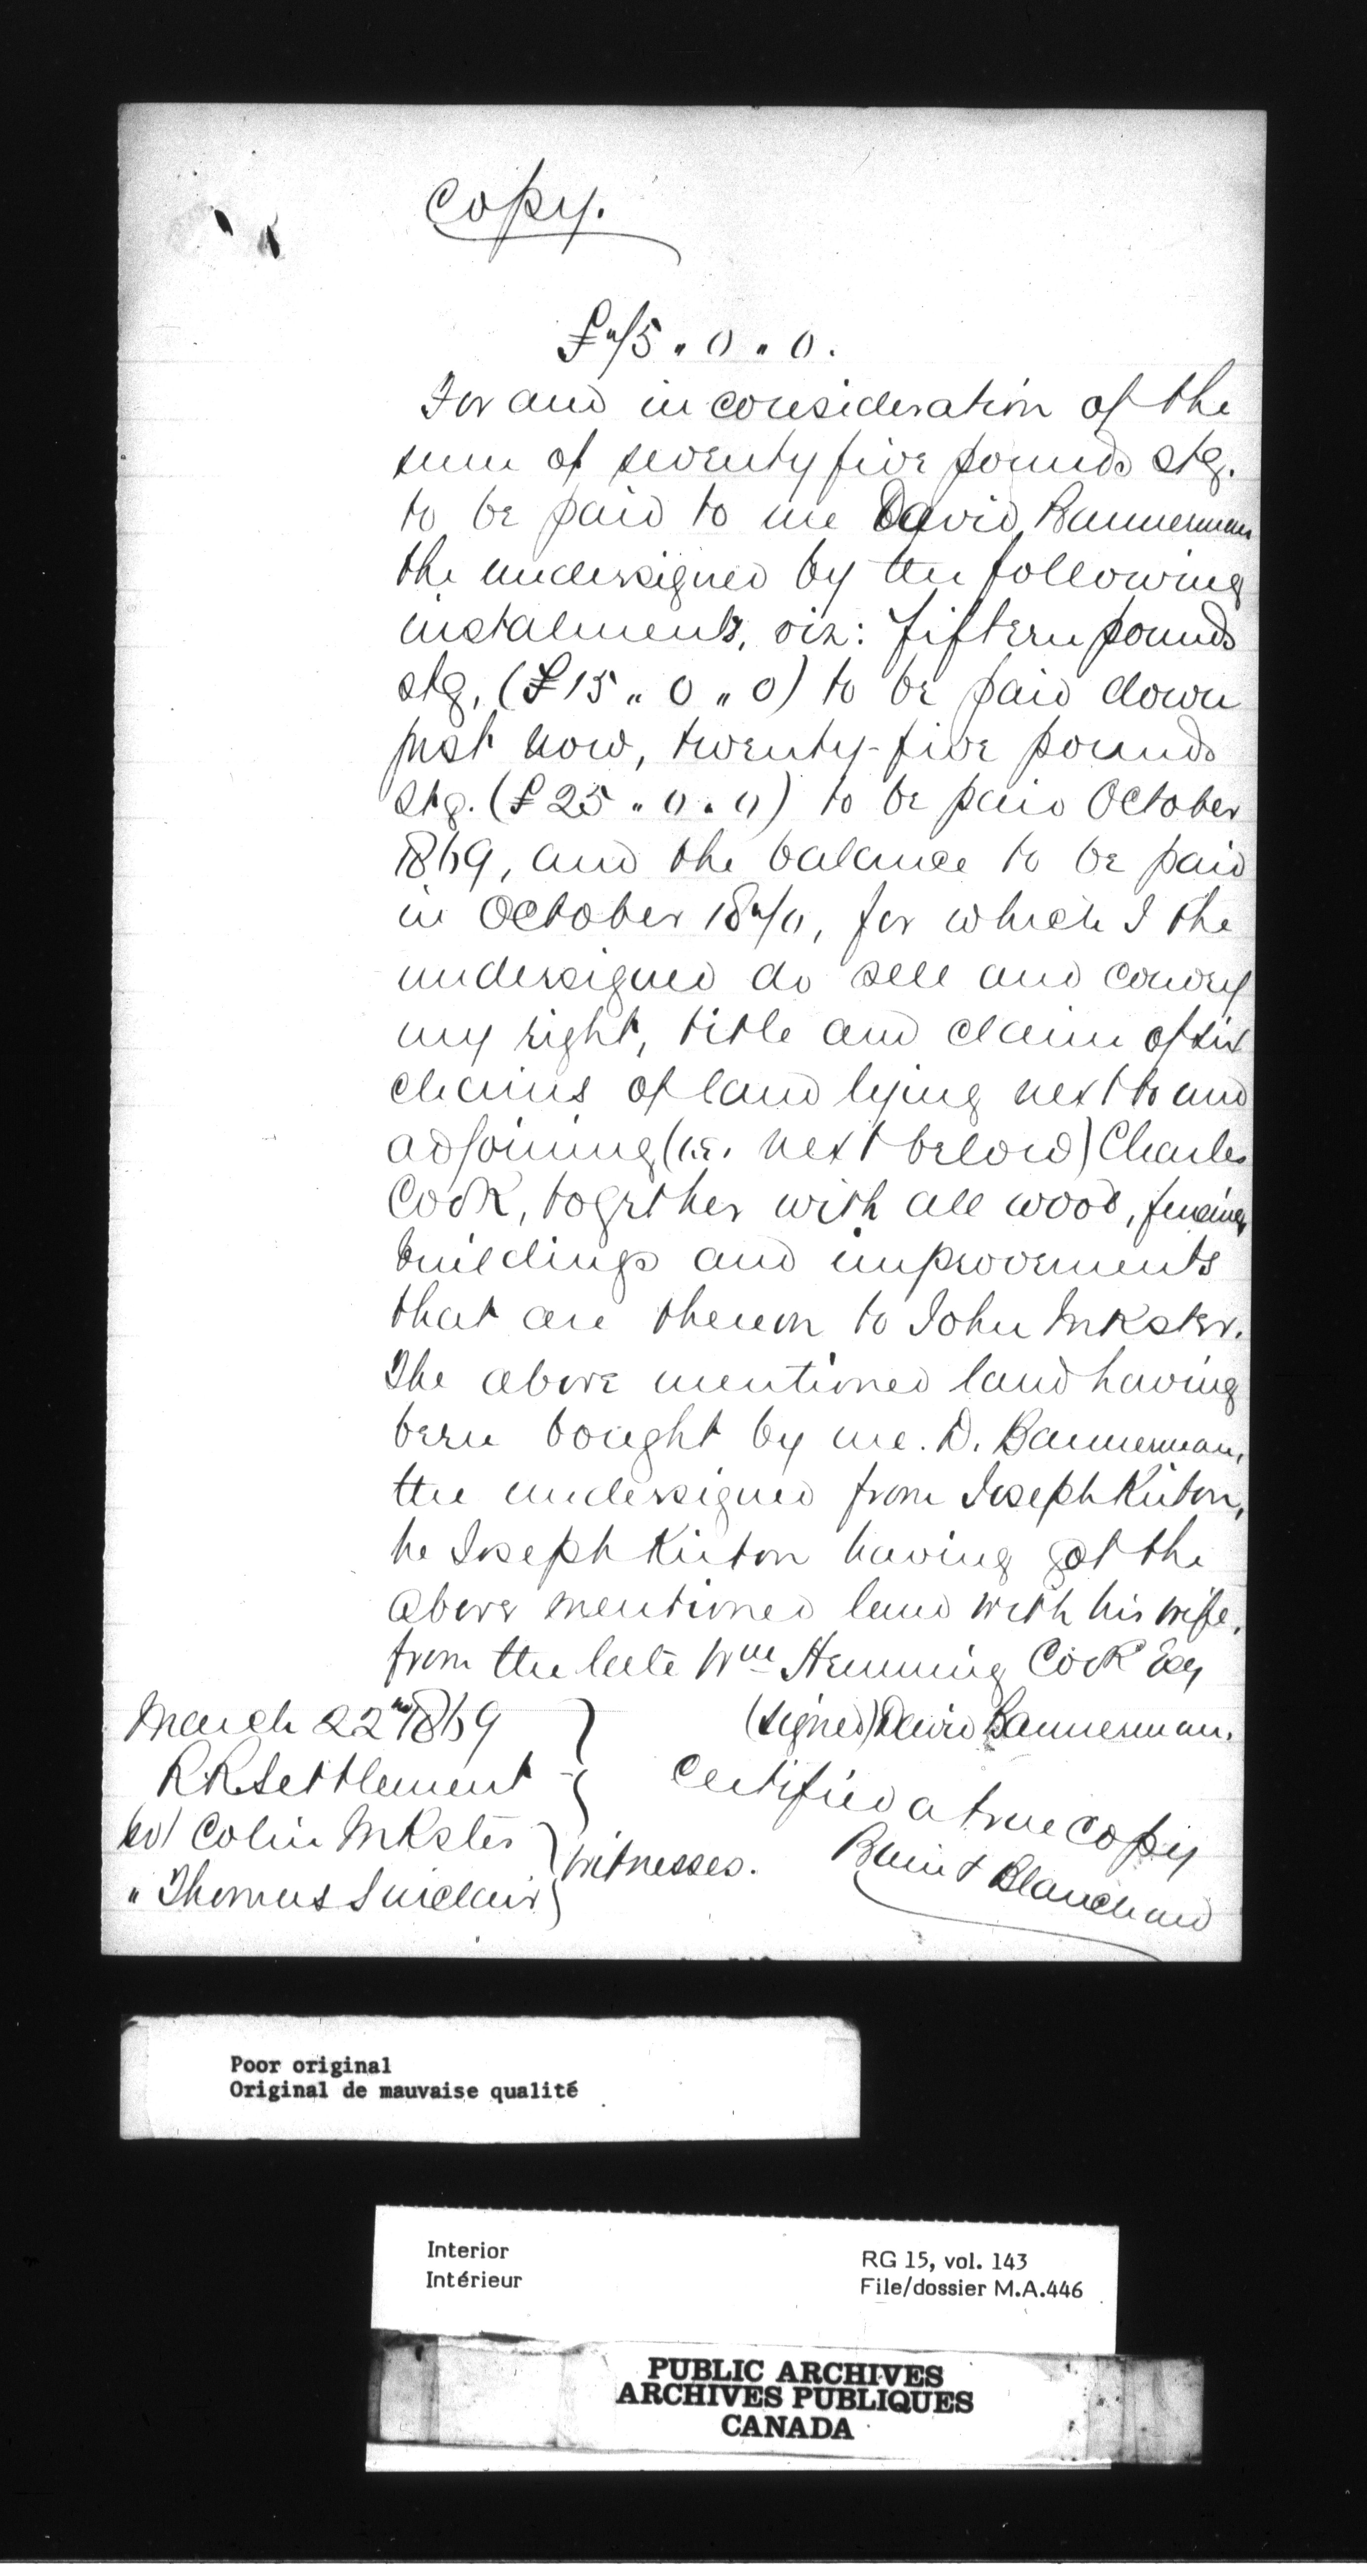 Copy.
£75 " 0 " 0.
For and in consideration of the
sum of seventy five pounds stg.
to be paid to me David Bannerman
the undersigned by the following
instalments, viz: fifteen pounds
stg. (£15 " 0 " 0) to be paid down
just now, twenty-five pounds
stg. (£25 " 0 " 0) to be paid October
1869, and the balance to be paid
in October 1870, for which I the
undersigned do sell and convey
my right, title and claim of six
chains of land lying next to and
adjoining (i.e. next below) Charles
Cook, together with all wood, fencing,
buildings and improvements
that are thereon to John Inkster.
The above mentioned land having
been bought by me. D. Bannerman,
the undersigned from Joseph Kirton,
he Joseph Kirton having got the
above mentioned land with his wife,
from the late Wm Hemming Cook Esq
March 22nd 1869
R.R. Settlement
(signed) David Bannerman.
Colin Inkster
" Thomas Sinclair
witnesses.
Certified a true copy
Bain & Blanchard
Poor original
Original de mauvaise qualité
Interior
Intérieur
RG 15, vol. 143
File/dossier M.A.446
PUBLIC ARCHIVES
ARCHIVES PUBLIQUES
CANADA